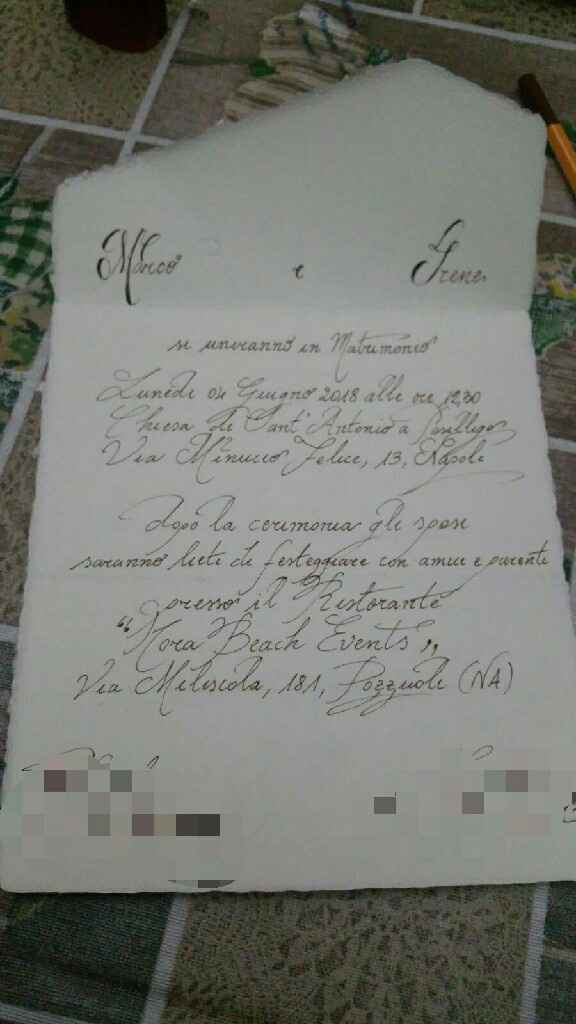 Marco e Irene
si uniranno in Matrimonio
Lunedì 04 Giugno 2018 alle ore 12,30
Chiesa di Sant'Antonio a Posillipo
Via Minucio Felice, 13, Napoli
dopo la cerimonia gli sposi
saranno lieti di festeggiare con amici e parenti
presso il Ristorante
"Nora Beach Events"
Via Miliscola, 181, Pozzuoli (NA)